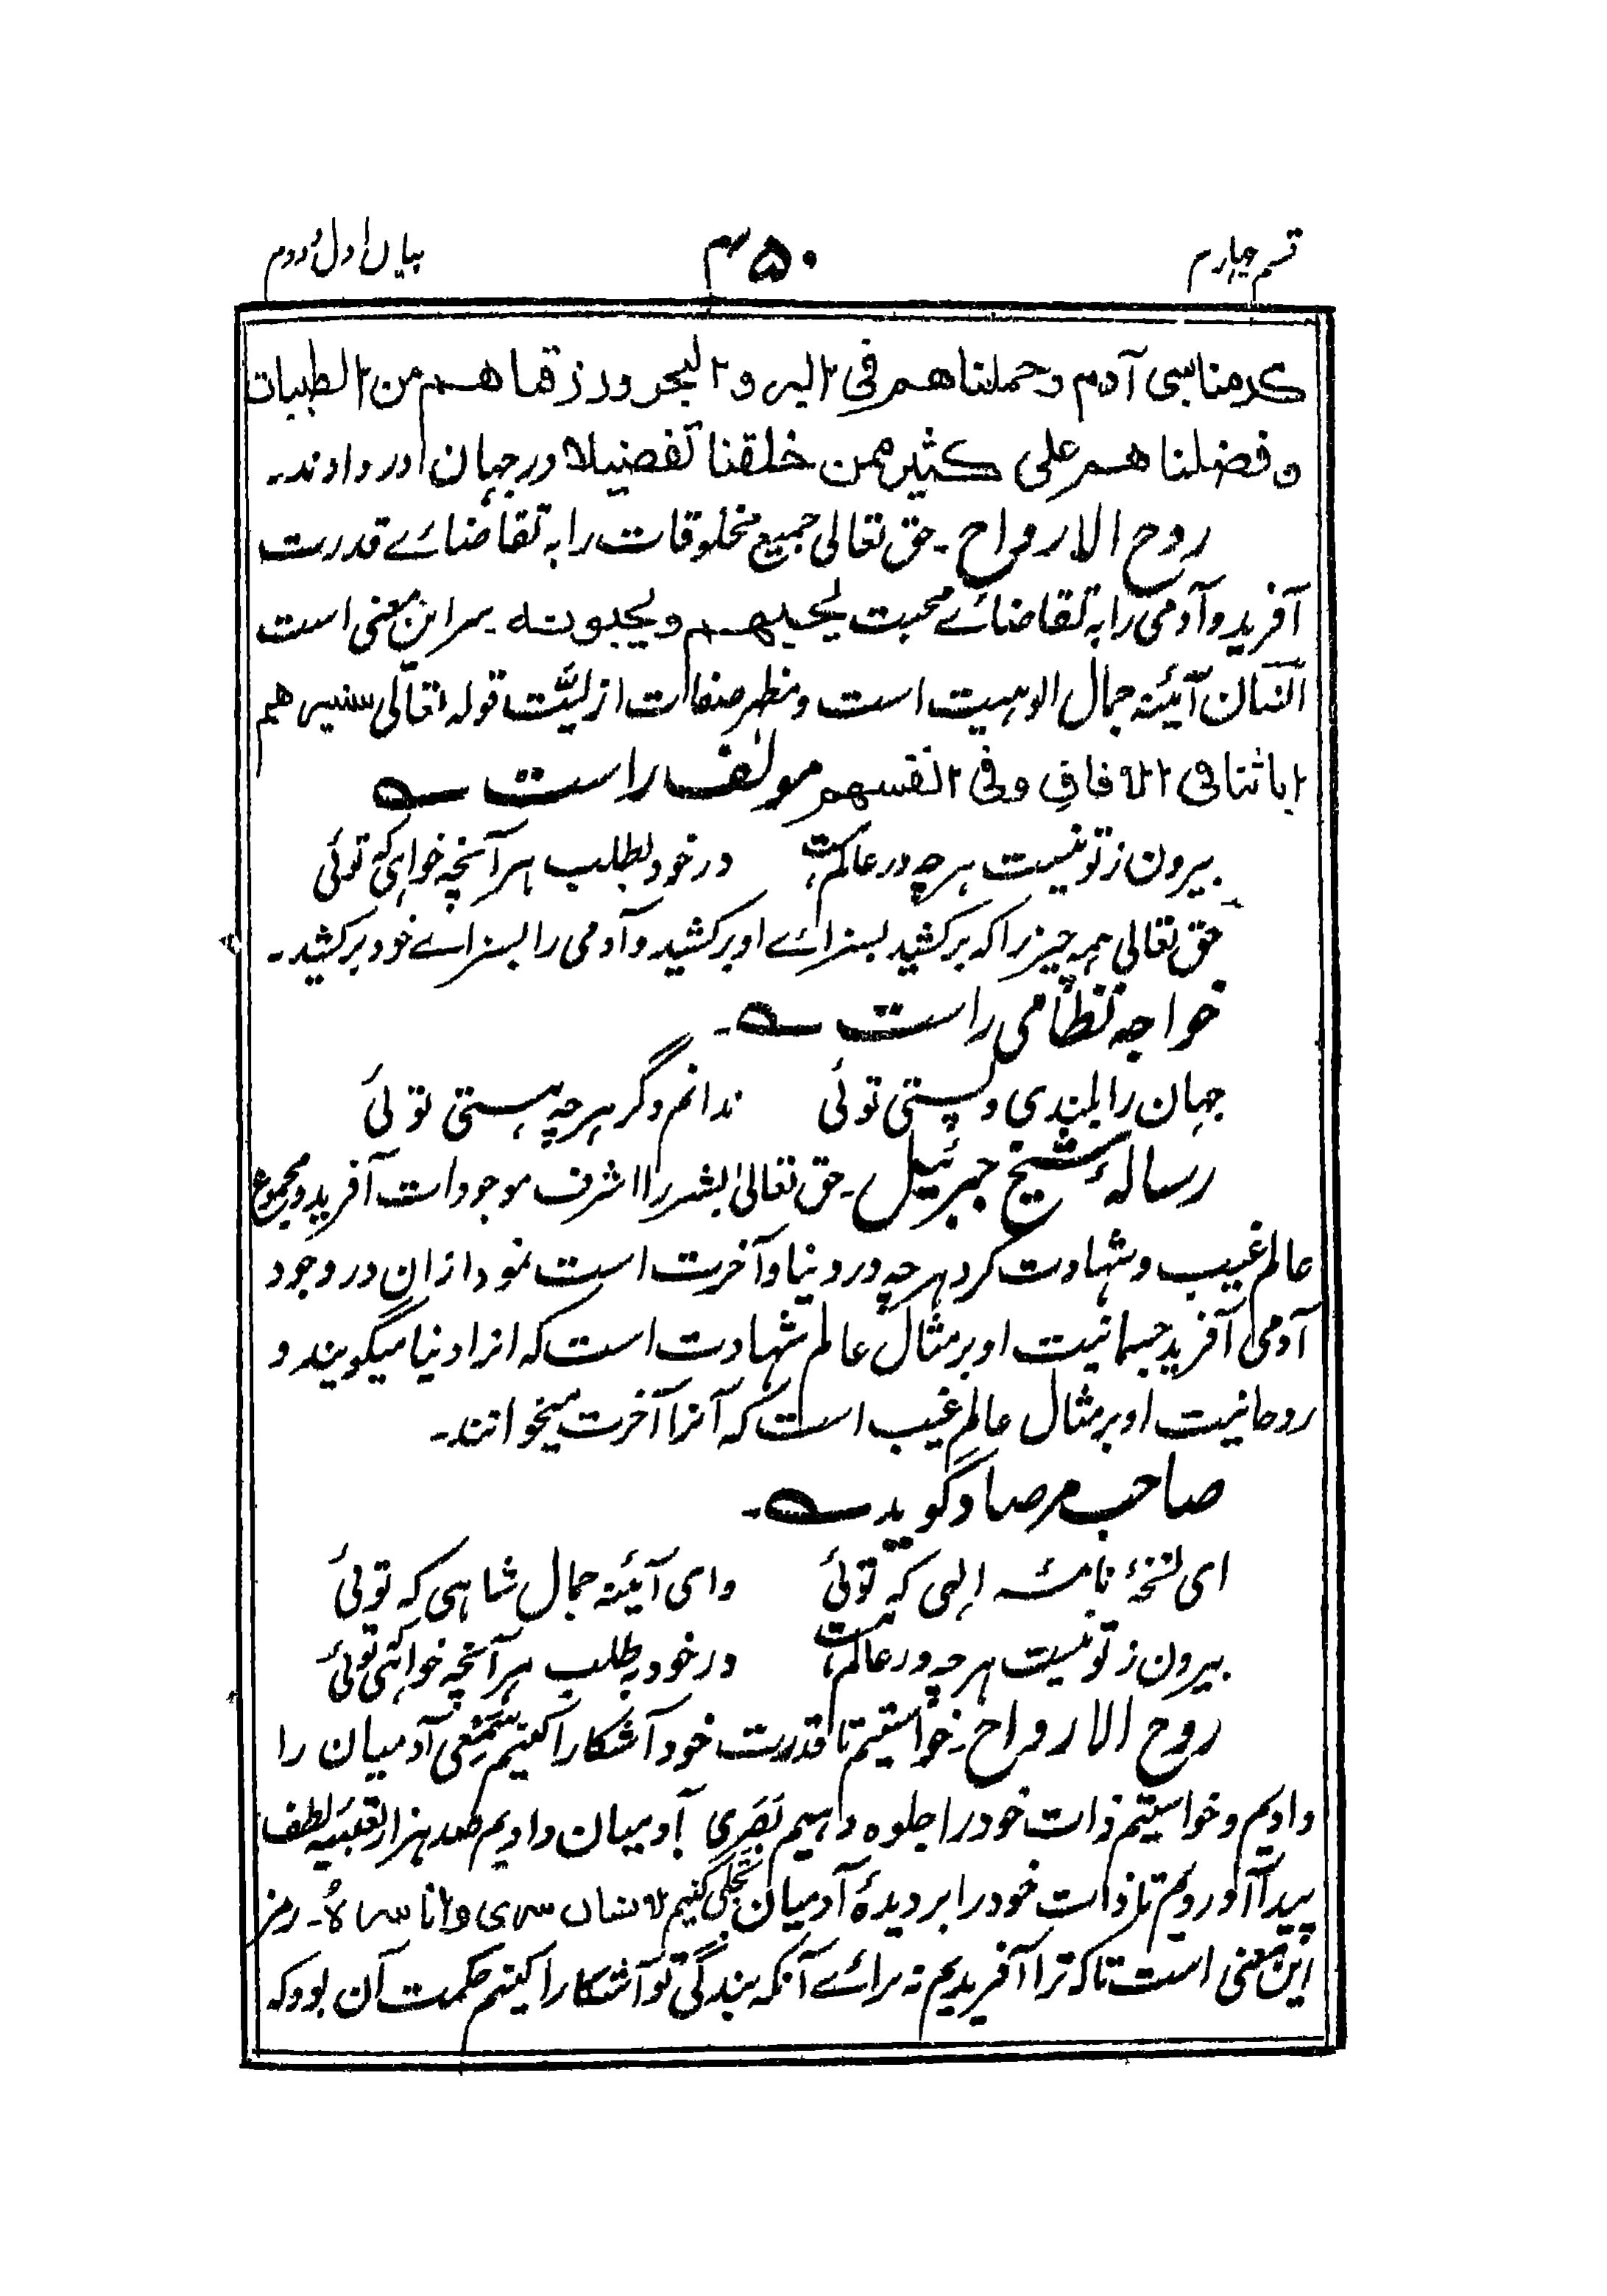 قسم چهارم
۴۵۰
بیان اول و دوم
کرمنا بنی آدم و حملناهم فی البر و البحر و رزقناهم من الطیبات
و فضلناهم علی کثیر ممن خلقنا تفضیلا در جهان در دادند۔
روح الارواح۔ حق تعالی جمیع مخلوقات را به تقاضائے قدرت
آفرید و آدمی را به تقاضائے محبت یحبهم و یحبونه۔ سر این معنی است
انسان آئینه جمال الوهیت است و مظهر صفات ازلیّت قوله تعالی سنریهم
ایاتنا فی الافاق و فی انفسهم مولف راست ؎
بیرون ز تو نیست هر چه در عالم هست
در خود بطلب هر آنچه خواهی که توئی
حق تعالی همه چیز را که برکشید بسزائے او برکشید و آدمی را بسزائے خود برکشید۔
خواجه نظامی راست ؎۔
جهان را بلندی و پستی توئی
ندانم وگر هر چه هستی توئی
رسالهٔ شیخ جبرئیل۔ حق تعالیٰ بشر را اشرف موجودات آفرید و مجموع
عالم غیب و شهادت کرد هر چه در دنیا و آخرت است نمودار آن در وجود
آدمی آفرید جسمانیت او بر مثال عالم شهادت است که انرا دنیا میگویند و
روحانیت او بر مثال عالم غیب است که آنرا آخرت میخوانند۔
صاحب مرصاد گوید ؎۔
ای نسخهٔ نامه الهی که توئی
وای آئینه جمال شاهی که توئی
بیرون ز تو نیست هر چه در عالم هست
در خود به طلب هر آنچه خواهی توئی
روح الارواح۔ خواستیم تا قدرت خود آشکارا کنیم سَمْعی آدمیان را
دادیم و خواستیم ذات خود را جلوه دهیم بَصَرِی آدمیان دادیم صد هزار تعبیه لطف
پیدا آوردیم تا ذات خود را بر دیدهٔ آدمیان تجلی کنیم الانسان سری و انا سرهٗ۔ رمز
این معنی است تا که ترا آفریدیم نه برائے آنکه بندگی تو آشکارا کنیم حکمت آن بود که